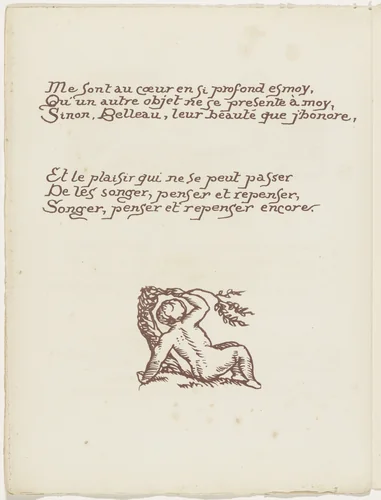 Me sont au cœur en si profond esmoy,
Qu'un autre objet ne se presente à moy,
Sinon, Belleau, leur beauté que j'honore,
Et le plaisir qui ne se peut passer
De les songer, penser et repenser,
Songer, penser et repenser encore.